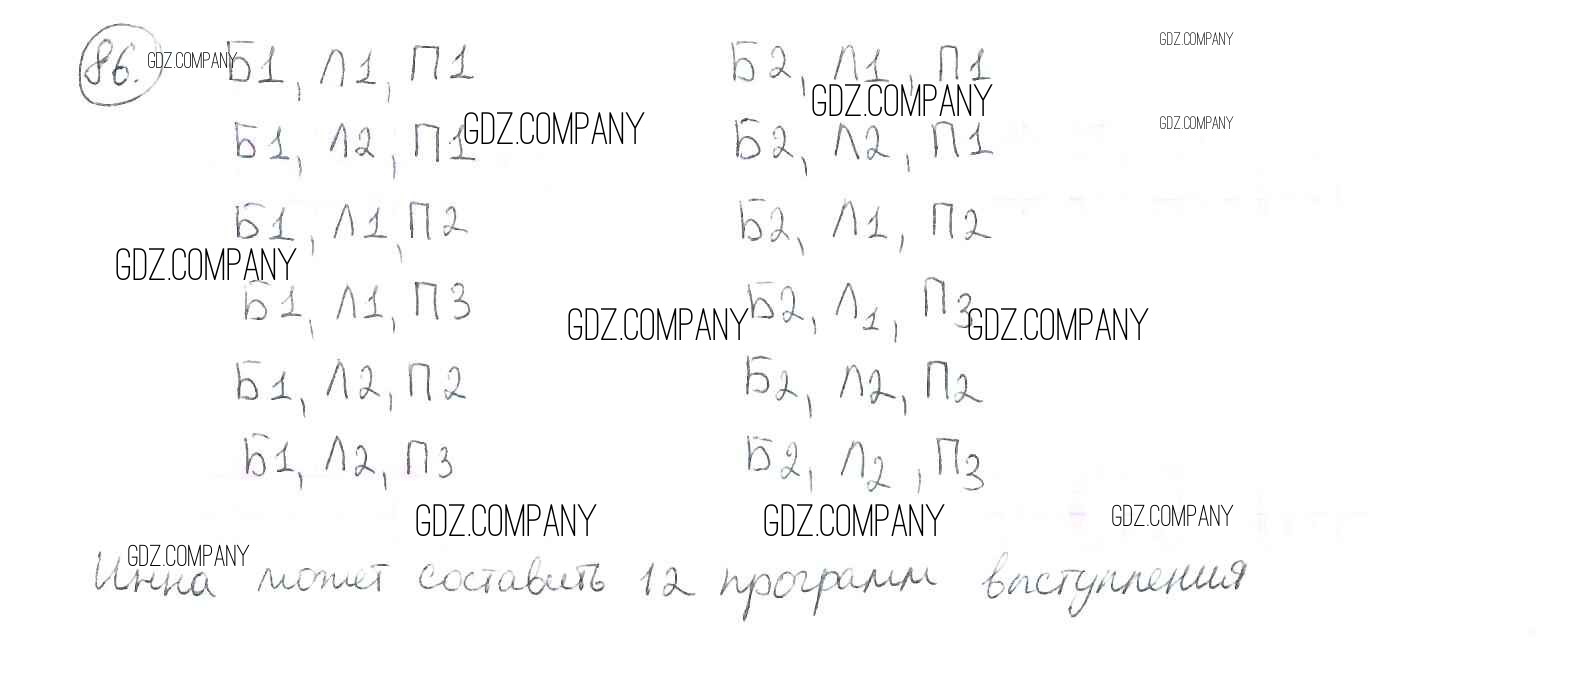 86. GDZ.COMPANY Б1, Л1, П1 Б2, Л1, П1 GDZ.COMPANY
GDZ.COMPANY
Б1, Л2, П1 GDZ.COMPANY Б2, Л2, П1 GDZ.COMPANY
Б1, Л1, П2 Б2, Л1, П2
GDZ.COMPANY
Б1, Л1, П3 Б2, Л1, П3
GDZ.COMPANY GDZ.COMPANY
Б1, Л2, П2 Б2, Л2, П2
Б1, Л2, П3 Б2, Л2, П3
GDZ.COMPANY GDZ.COMPANY GDZ.COMPANY
GDZ.COMPANY
Инна может составить 12 программ выступления